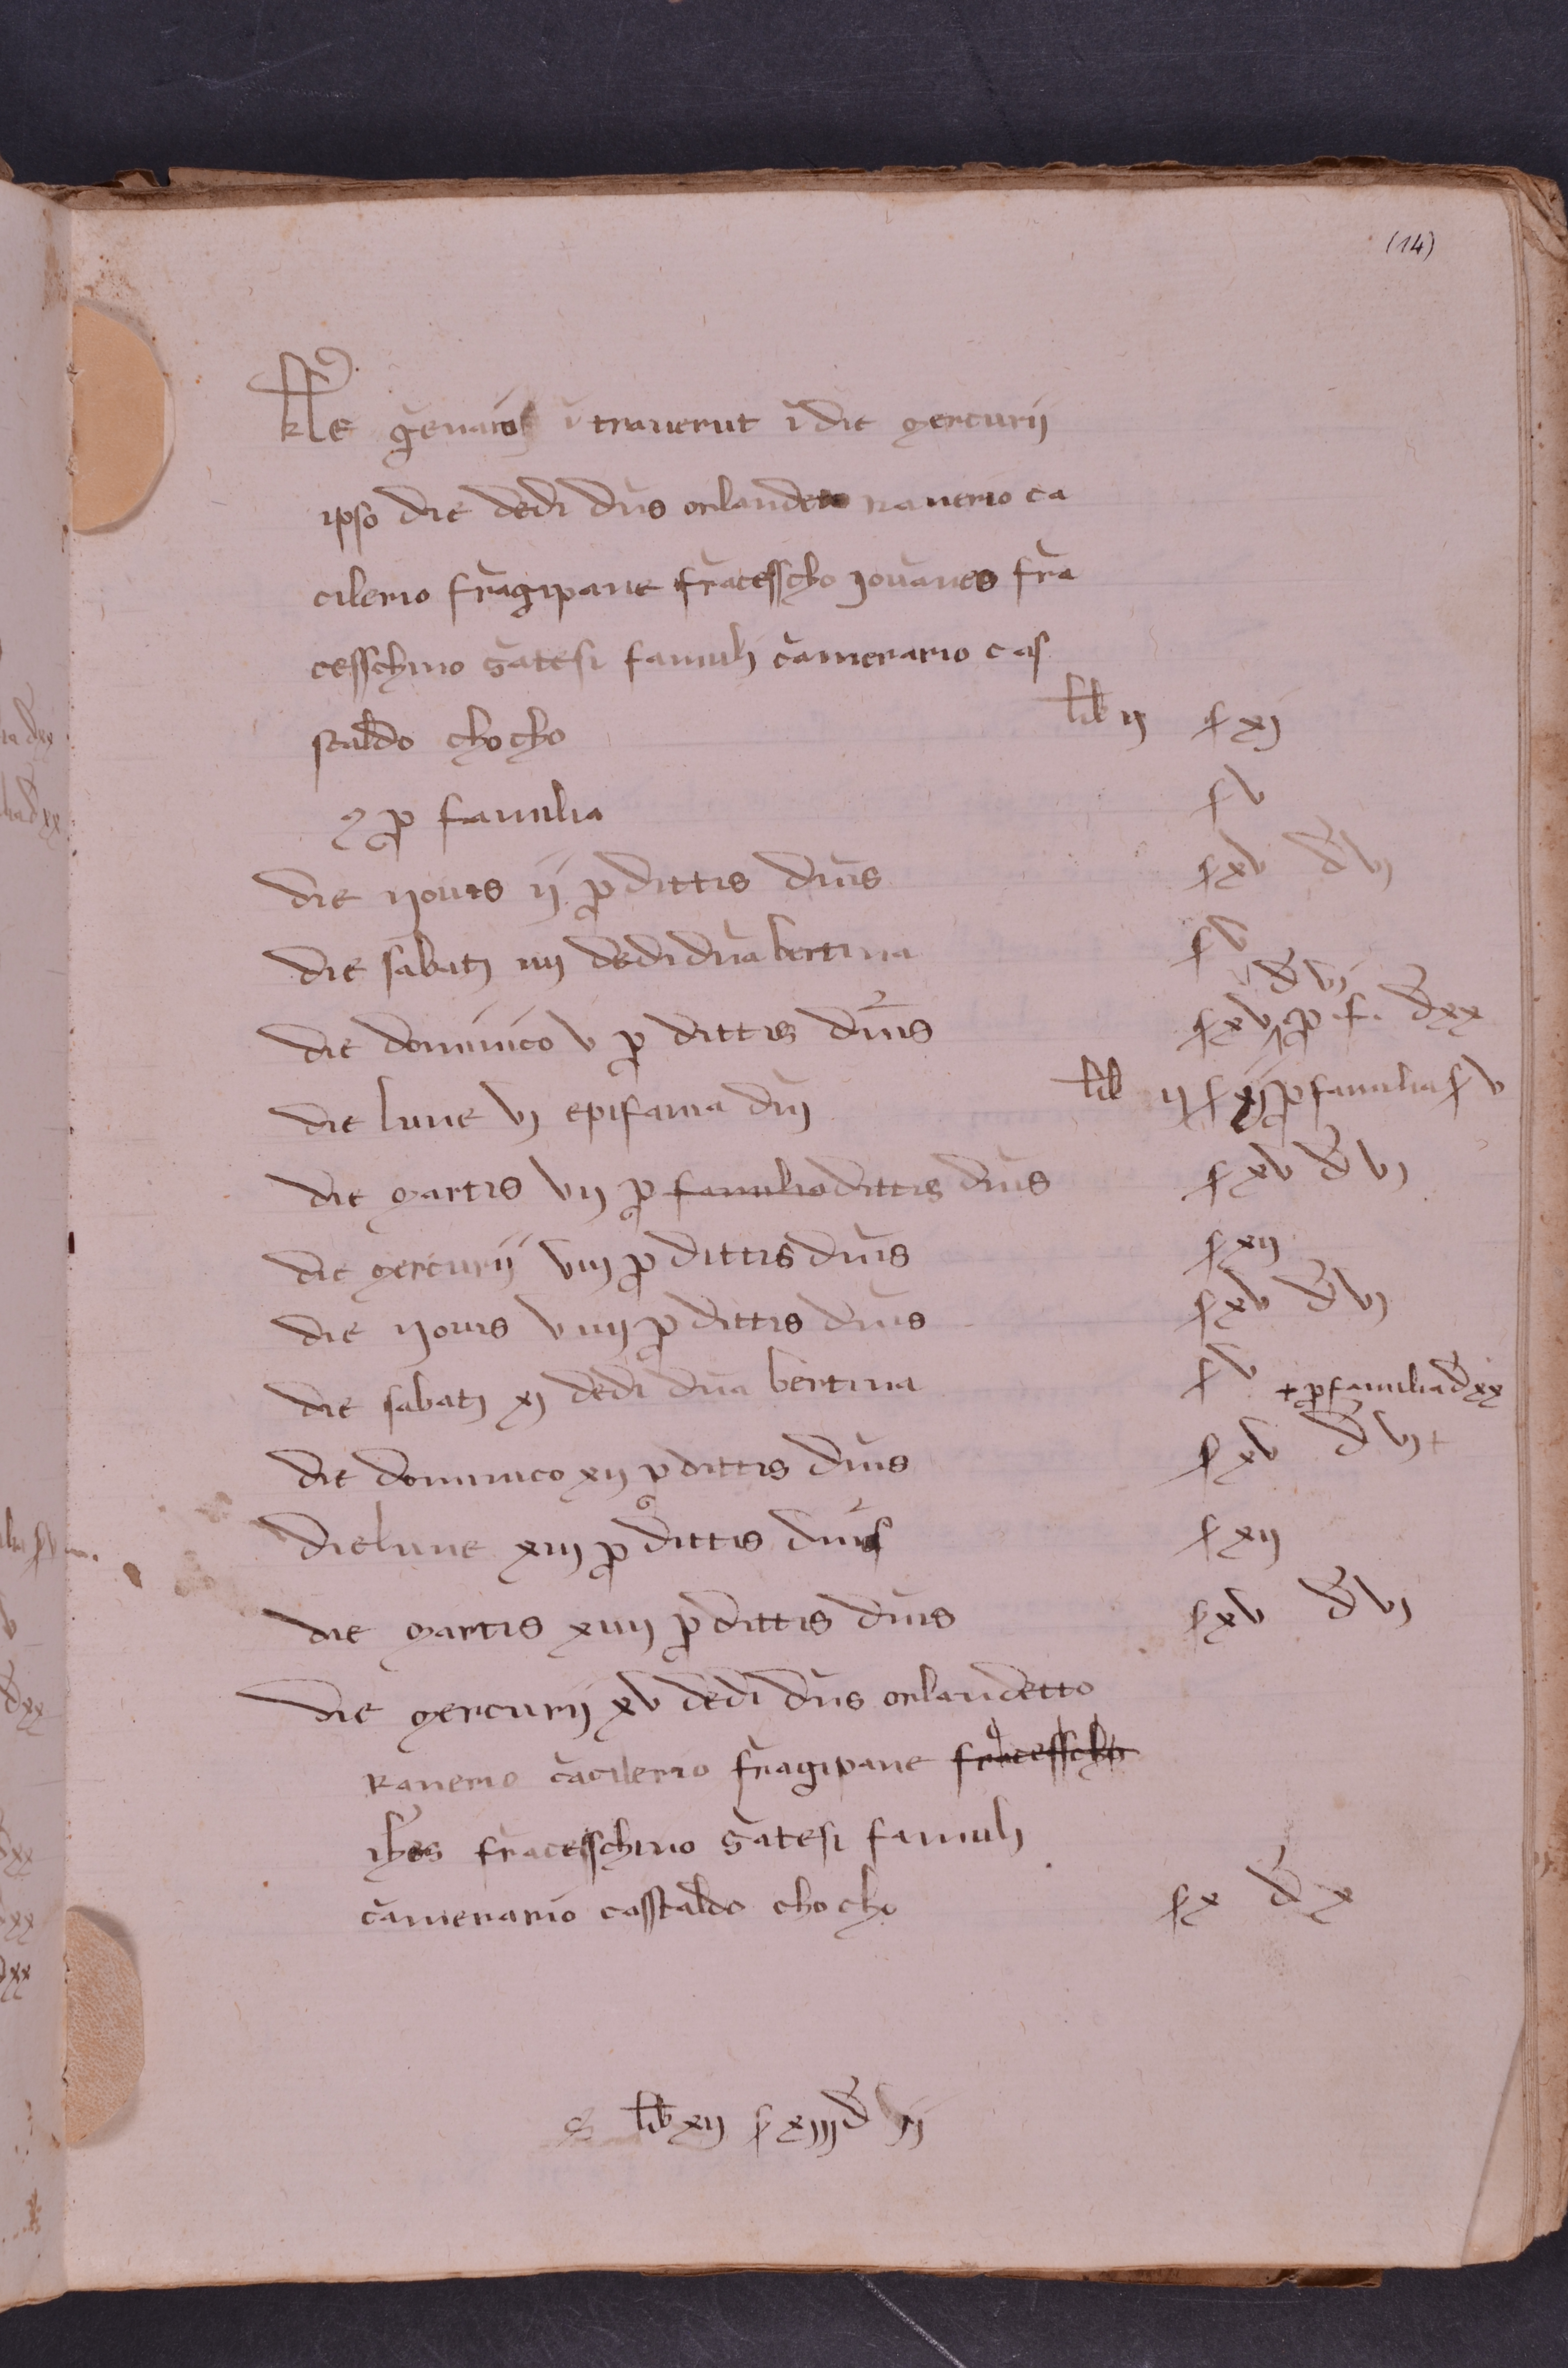 (14)
kl̄e g̃enaios ĩtrauerut ĩ die mercurij
ipso die dedi dñs orlandeto ranerio ca
cilerio frãgipane frãcesscho jouãnes frã
cesschino gãtesi famuli cãmerario cas
staldo chocho lib ij s xj
⁊ p famulia s v
die youis ij p dittis dñis s xv d̃ vj
die sabatj iiij dedi dñа bertina s v
d̃ vj
die dominico v p dittis dñis s xv p f. d̃ xx
die lune vj epifania dñj lib ij s xij p famulia s v
die martis vij p famulia dittis dñis s xv d̃ vj
die mercurij viij p dittis dñis s xij
die youis viiij p dittis dñis s xv d̃ vj
die sabatj xj dedi dña bertina s v + p famulia d̃ xx
die dominico xij p dittis dñis s xv d̃ vj +
die lune xiij p dittis dñis s xij
die martis xiiij p dittis dñis s xv d̃ vj
die mercurij xv dedi dñs orlandetto
Ranerio cãcilerio frãgipane frãcesscho
ihes fracesschino gãtesi famuli
cãmerario casstaldo chocho s x d̃ x
S lib xij s xiiij d̃ ij